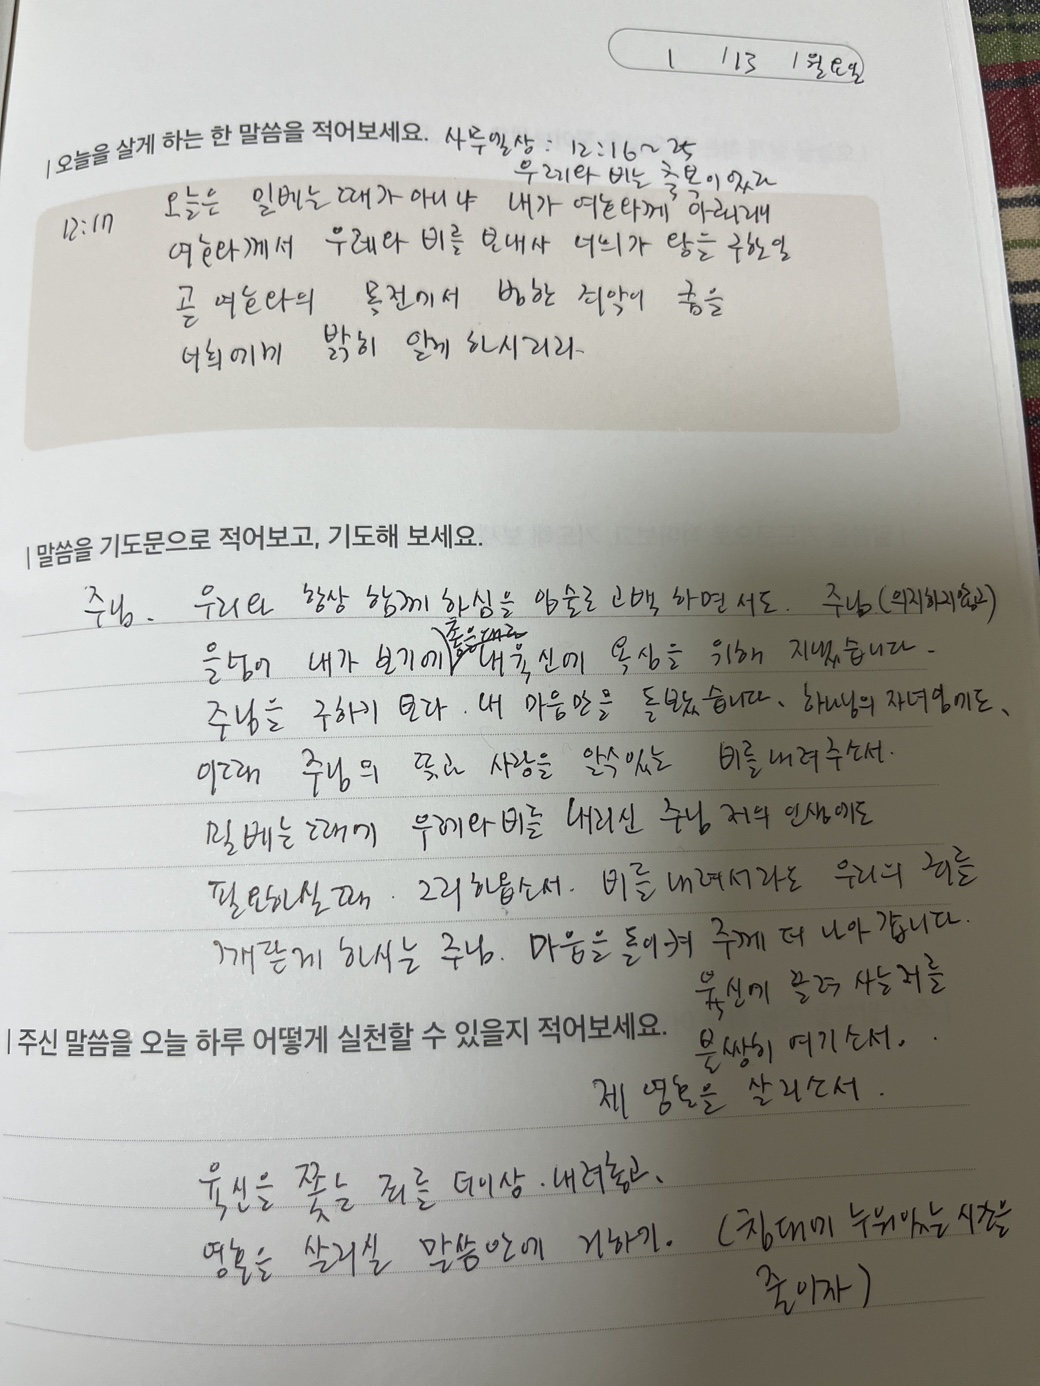 1 /13 /월요일
|오늘을 살게 하는 한 말씀을 적어보세요. 사무엘상: 12:16~25
우레와 비는 축복이었다
12:17 오늘은 밀베는 때가 아니냐 내가 여호와께 아뢰리니
여호와께서 우레와 비를 보내사 너희가 왕을 구한일
곧 여호와의 목전에서 범한 죄악이 큼을
너희에게 밝히 알게 하시리라.
|말씀을 기도문으로 적어보고, 기도해 보세요.
주님. 우리와 항상 함께 하심을 입술로 고백 하면서도. 주님(의지하지않고)
을 내가 보기에 좋은대로 내육신에 욕심을 위해 지냈습니다.
주님을 구하기 보다. 내 마음만을 돌봤습니다. 하나님의 자녀임에도,
이때 주님의 뜻과 사랑을 알수있는 비를내려주소서.
밀 베는 때에 우레와비를 내리신 주님 저의 인생에도
필요하실 때. 그리하옵소서. 비를내려서라도 우리의 죄를
깨닫게 하시는 주님. 마음을 돌이켜 주께 더 나아갑니다.
육신에 끌려 사는 저를
불쌍히 여기소서.
|주신 말씀을 오늘 하루 어떻게 실천할 수 있을지 적어보세요.
제 영혼을 살리소서.
육신을 쫓는 죄를 더이상. 내려놓고,
영혼을 살리실 말씀안에 거하기. (침대에 누워있는 시간을
줄이자)